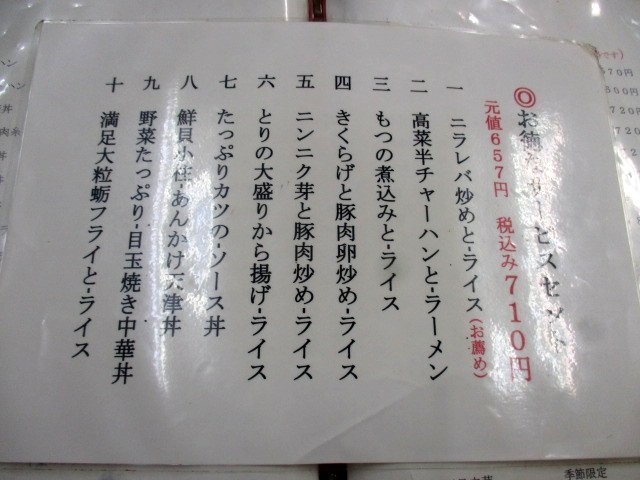 ◎お徳なサービスセット
元値657円 税込み710円
一 ニラレバ炒めと-ライス(お薦め)
二 高菜半チャーハンと-ラーメン
三 もつの煮込みと-ライス
四 きくらげと豚肉卵炒め-ライス
五 ニンニク芽と豚肉炒め-ライス
六 とりの大盛りから揚げ-ライス
七 たっぷりカツの-ソース丼
八 鮮貝小柱-あんかけ天津丼
九 野菜たっぷり-目玉焼き中華丼
十 満足大粒蛎フライと-ライス
季節限定